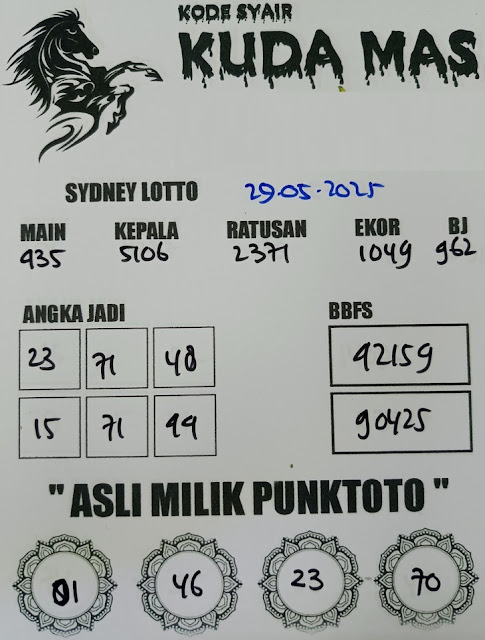 KODE SYAIR
KUDA MAS
SYDNEY LOTTO 29-05-2025
MAIN KEPALA RATUSAN EKOR BJ
935 5106 2371 1049 962
ANGKA JADI BBFS
23 71 48 92159
15 71 99 90425
" ASLI MILIK PUNKTOTO "
01 46 23 70